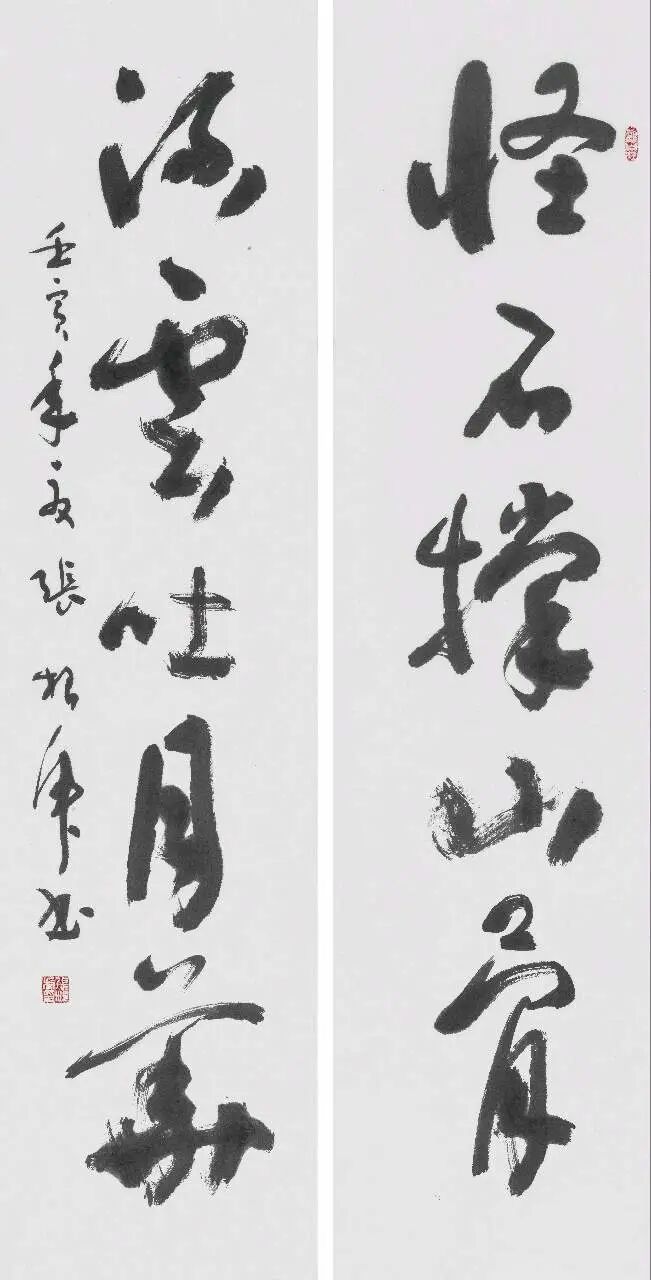 怪石撑山骨
流雲吐月華
壬寅年夏張書